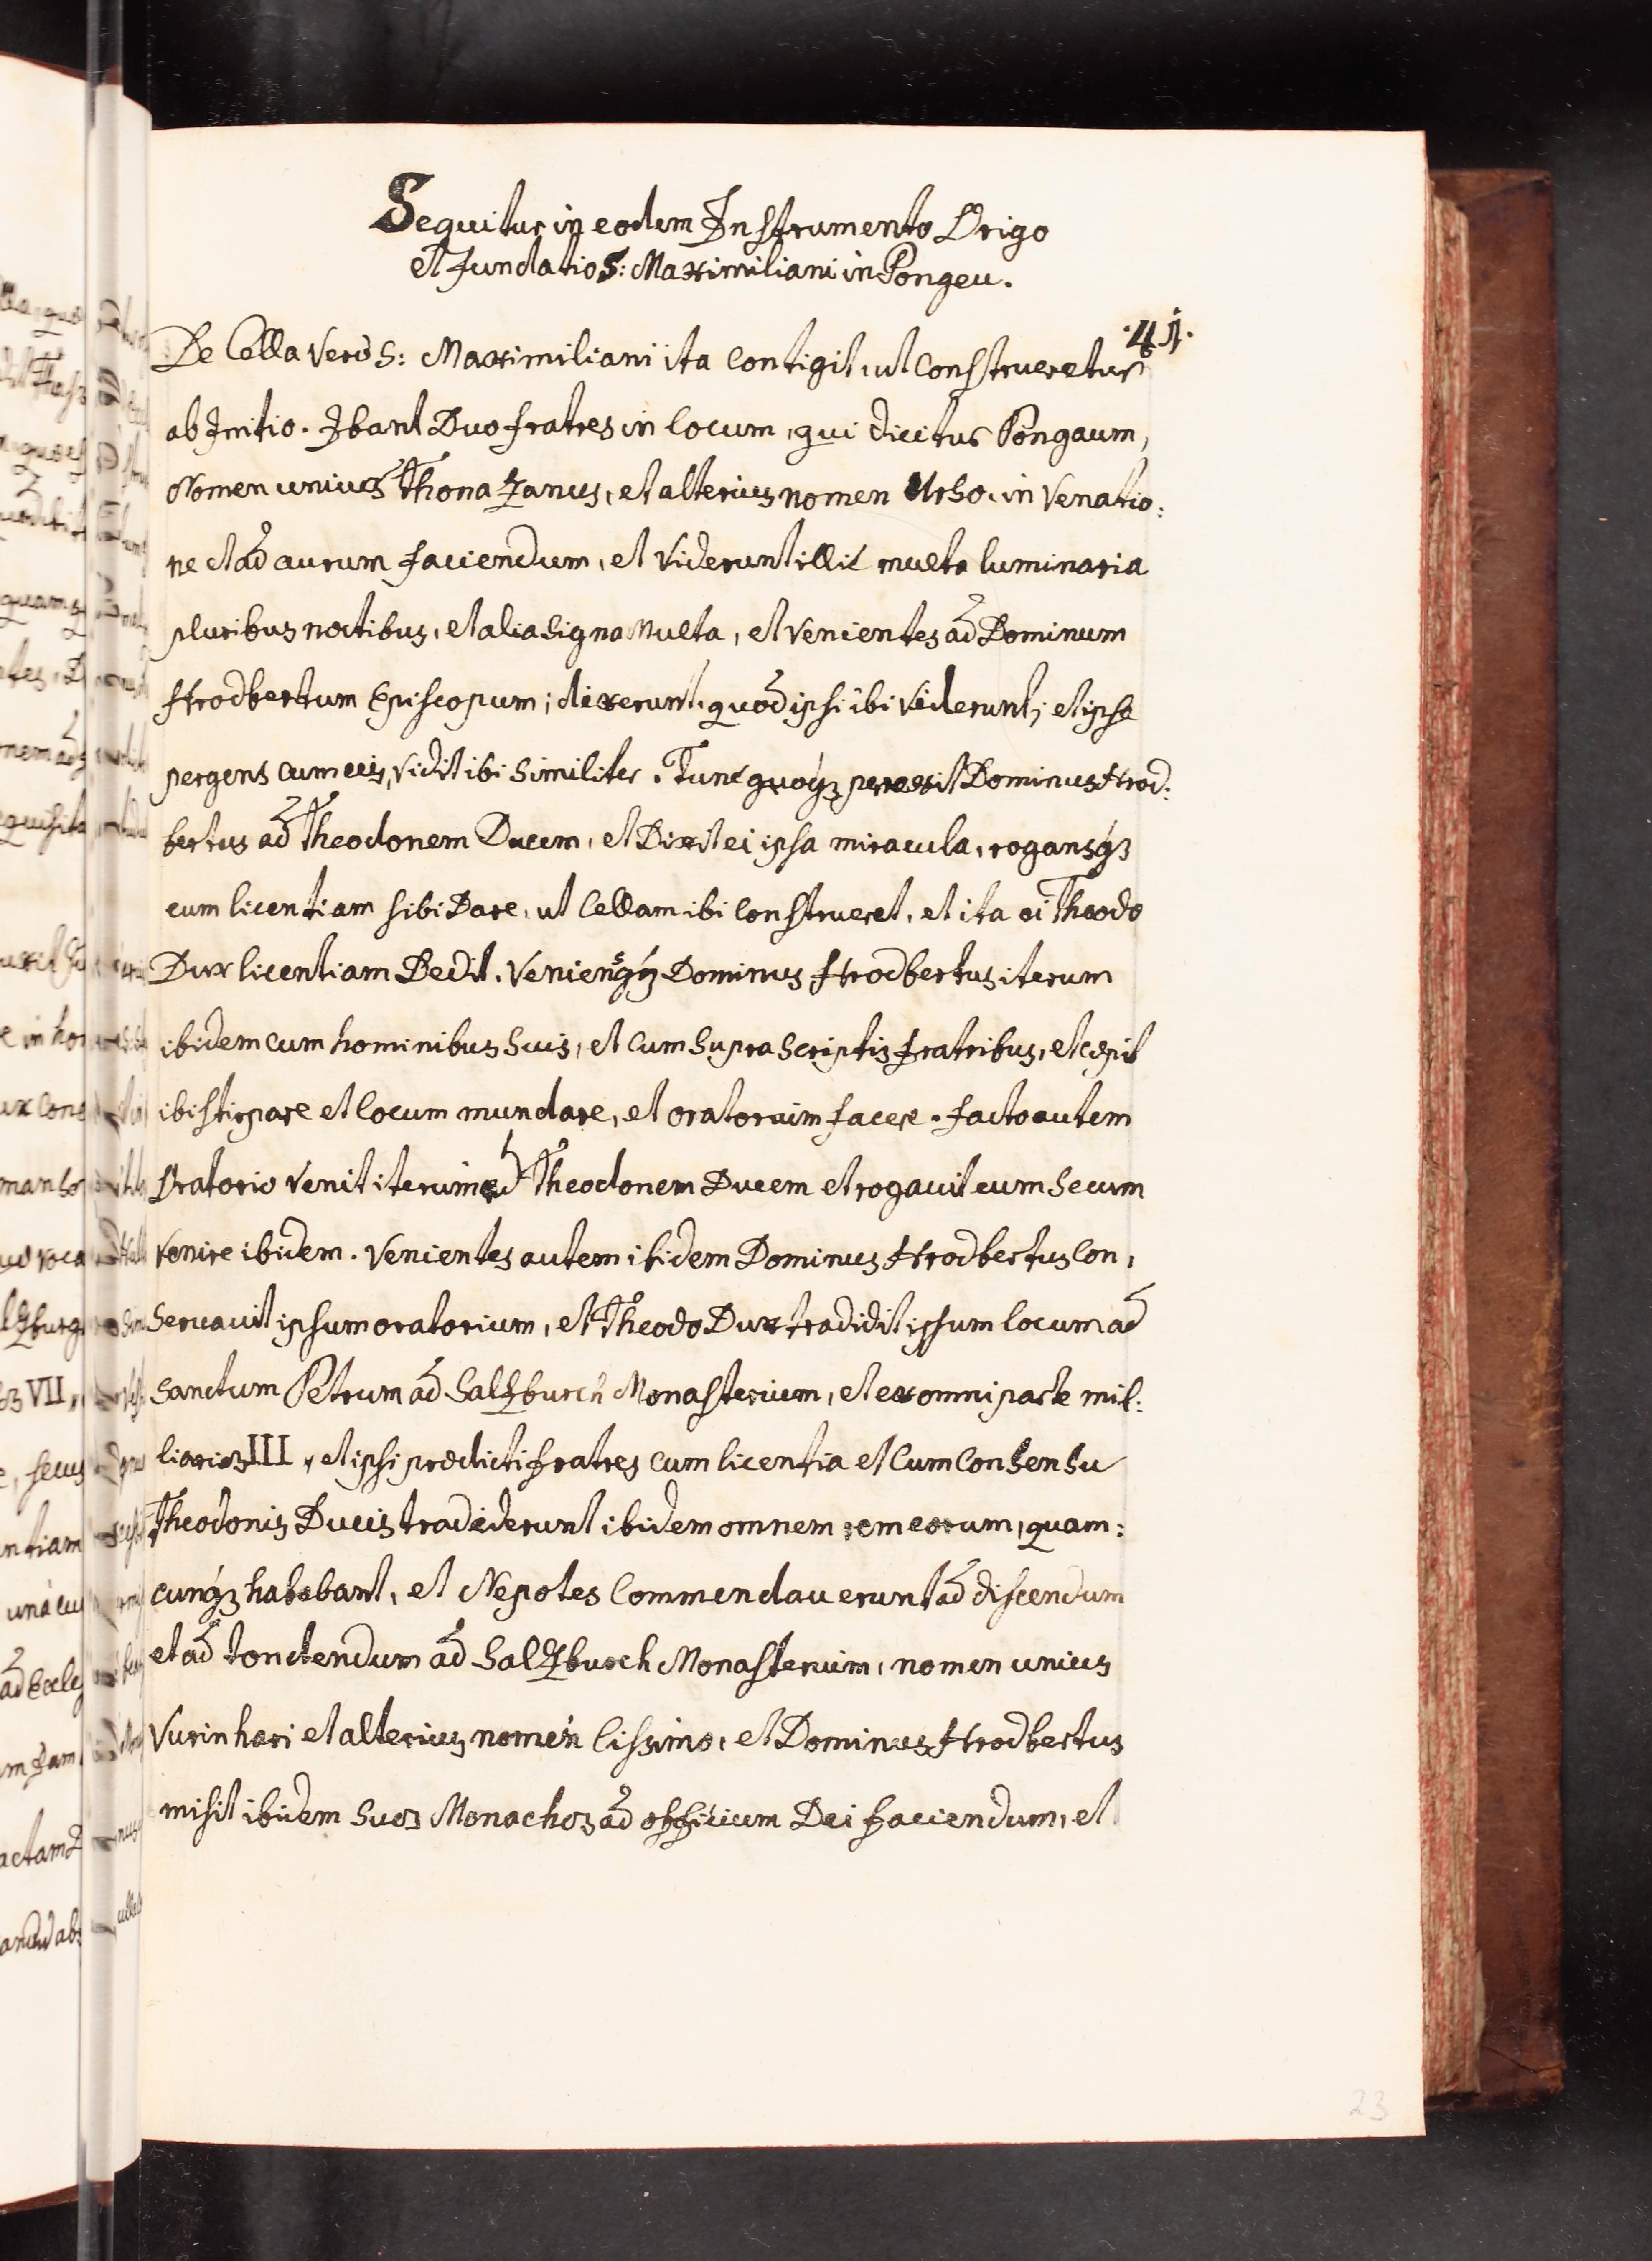 Sequitur in eodem Instrumento Origo
et fundatio S: Maximiliani in Pongeu.
·41·
De Cella Verò S: Maximiliani ita Contigit, ut Construeretur
ab Initio. Ibant Duo fratres in locum, qui dicitur Pongaum,
Nomen unius Thonazanus, et alterius nomen Urso, in Venatio:
ne et ad aurum faciendum, et Viderunt illic multa luminaria
pluribus noctibus, et alia signa Multa, et Venientes ad Dominum
Hrodbertum Episcopum; dixerunt, quod ipsi ibi Viderunt; et ipse
pergens cum eis, Vidit ibi similiter. Tunc quoqz perrexit Dominus Hrod:
bertus ad Theodonem Ducem, et Dixit ei ipsa miracula, rogansqz
eum licentiam sibi Dare, ut Cellam ibi Construeret, et ita ei Theodo
Dux licentiam Dedit. Veniensqz Dominus Hrodbertus iterum
ibidem cum hominibus suis, et cum supra scriptis fratribus, et cepit
ibi stirpare et locum mundare, et oratorium facere. facto autem
Oratorio Venit iterum ad Theodonem Ducem et rogavit eum secum
venire ibidem. Venientes autem ibidem Dominus Hrodbertus Con,
servavit ipsum oratorium, et Theodo Dux tradidit ipsum locum ad
sanctum Petrum ad Salzburch Monasterium, et ex omni parte mil:
liarios III, et ipsi prædicti fratres cum licentia et Cum Consensu
Theodonis Ducis tradiderunt ibidem omnem rem eorum, quam:
cunqz habebant, et Nepotes Commendaverunt ad discendum
et ad tondendum ad Salzburch Monasterium, nomen unius
Vurinhari et alterius nomen lissimo, et Dominus Hrodbertus
misit ibidem suos Monachos ad officium Dei faciendum, et
23